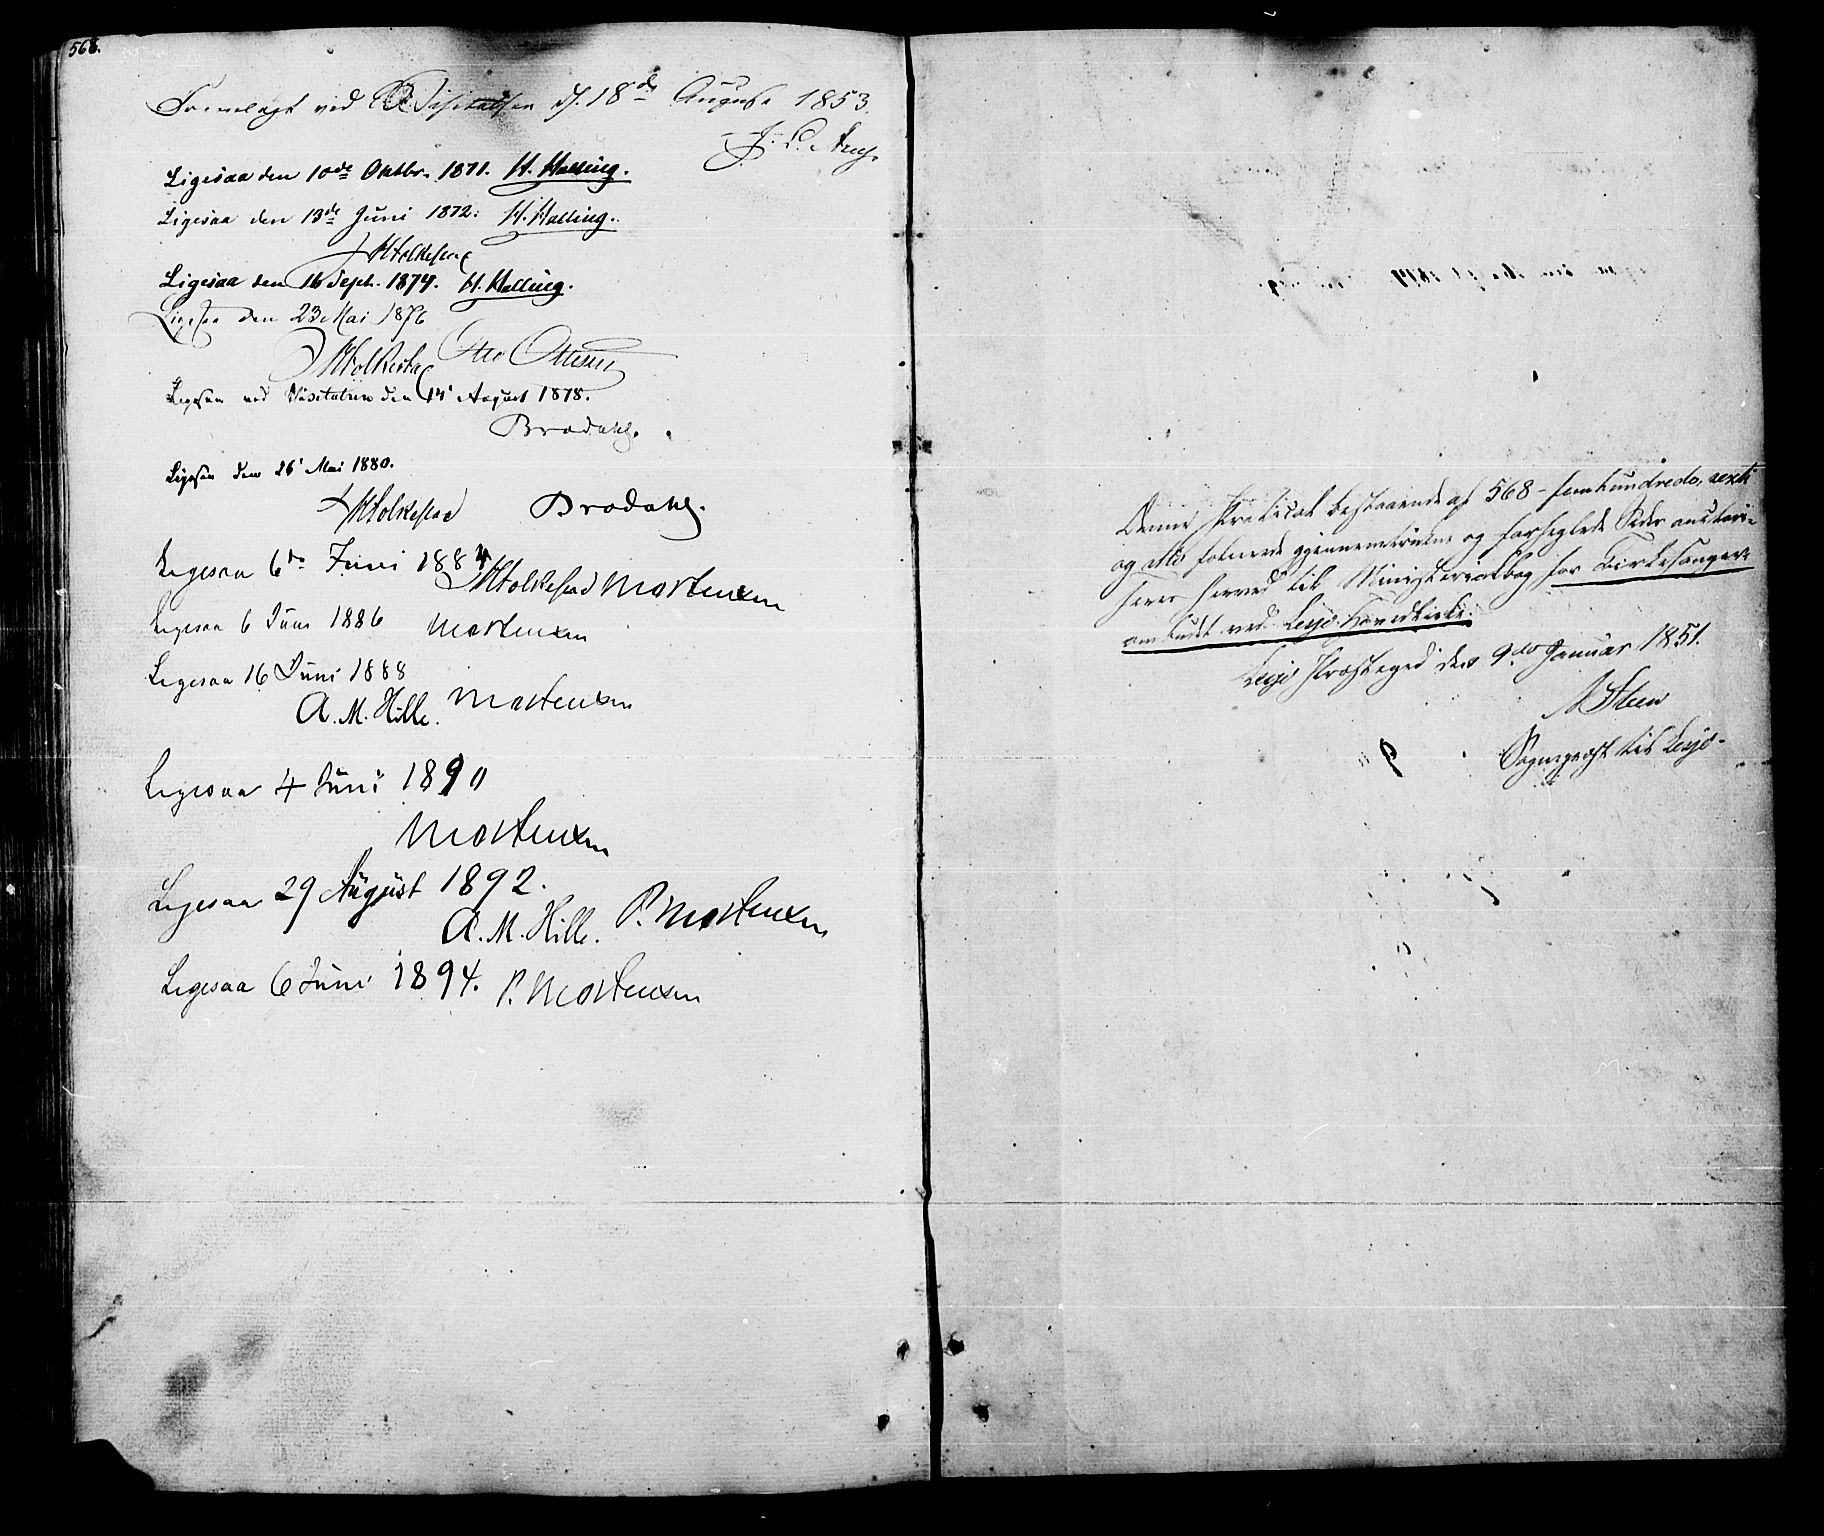 568.
Fremlagt ved Visitatsen d. 18de August 1853.
Ligesaa den 10de Oktbr. 1871. H. Halling.
Ligesaa den 13de Juni 1872. H. Halling.
Ligesaa den 16 Septb. 1874. H. Halling.
Ligesaa den 23 Mai 1876
Otto Ottesen
Ligesaa ved Visitatsen den 14' August 1878.
Brodahl.
Ligesaa den 26' Mai 1880.
Brodahl.
Ligesaa 6te Juni 1884
Mortensen
Ligesaa 6 Juni 1886 Mortensen
Ligesaa 16 Juni 1888
A. M. Hille. Mortensen
Ligesaa 4 Juni 1890
Mortensen
Ligesaa 29 August 1892.
A. M. Hille. P. Mortensen
Ligesaa 6 Juni 1894. P. Mortensen
Denne Protocol bestaaende af 568 - femhundrede, sexti
og otte folierede gjennemtrukne og forseglede Sider authori-
seres herved til Ministerialbog for Kirkesanger-
ombudet ved Lesjø Hovedkirke.
Lesjø Præsteged den 9de Januar 1851.
Steen
Sognepræst til Lesjø